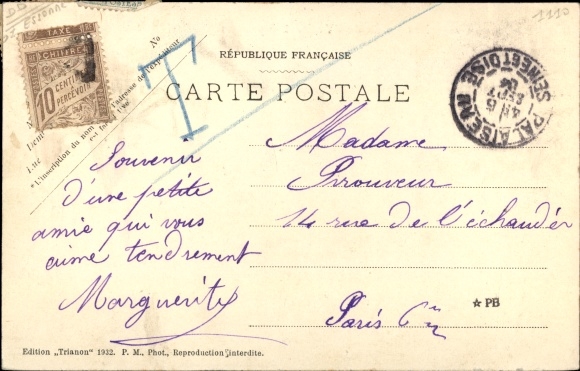 1110
TAXE
CHIFFRE
10 CENTIMES
A PERCEVOIR
T
RÉPUBLIQUE FRANÇAISE
CARTE POSTALE
PALAISEAU
6
SEPT
SEINE ET OISE
No
l'adresse de l'expéditeur
*L'inscription du nom et
est facultative
Souvenir
d'une petite
amie qui vous
aime tendrement
Marguerite
Madame
Prouveur
14 rue de l'échaudé
Paris 6e
☆ PB
Edition „Trianon" 1932. P. M., Phot., Reproduction interdite.